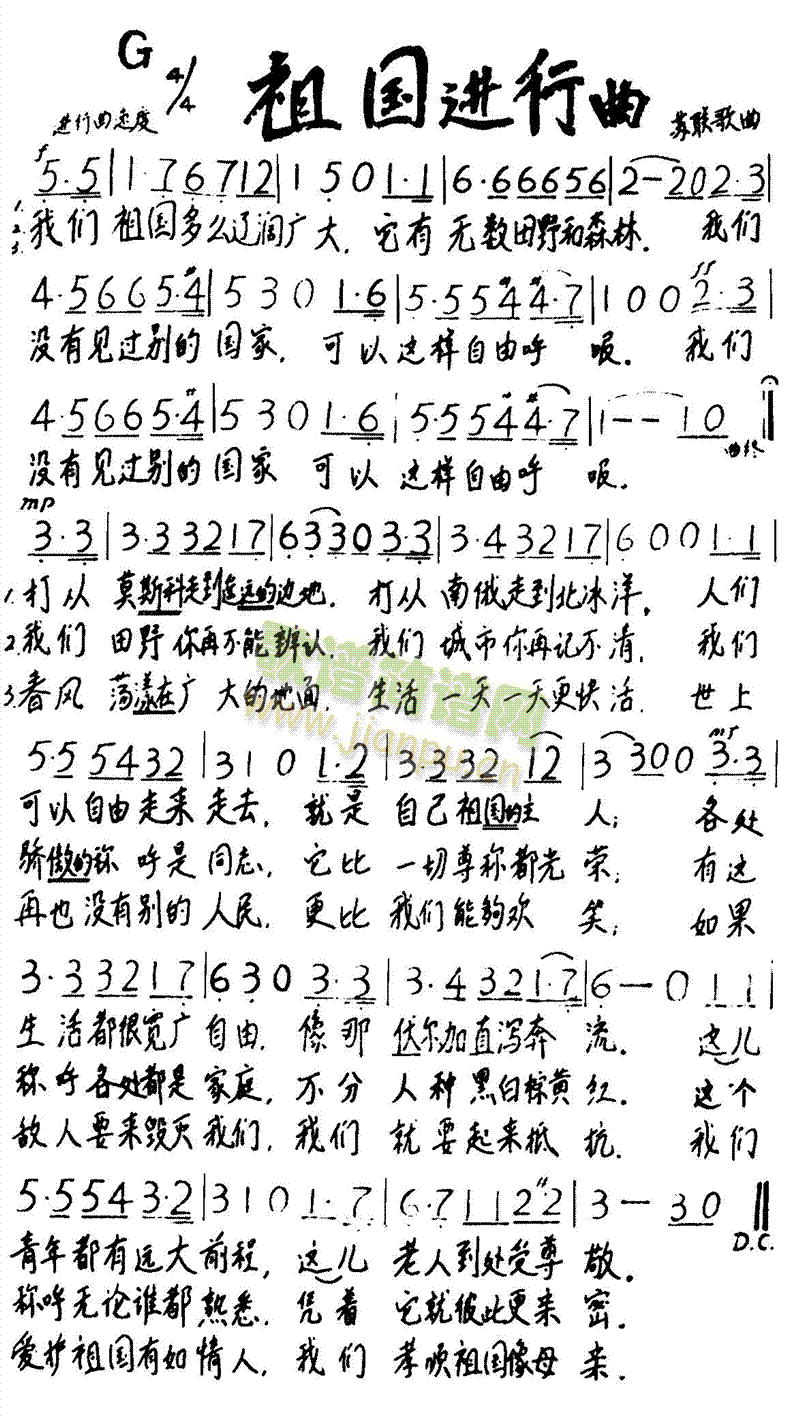 G 4/4 祖国进行曲
进行曲速度 苏联歌曲
f
5·5|1·76712|1501·1|6·66656|2-202·3|
1.
2.我们 祖国多么辽阔广大，它有 无数田野和森林。 我们
3.
ff
4·5665·#4|5301·6|5·55#4#4·7|1002·3|
没有见过别的 国家，可以 这样自由呼 吸。 我们
4·5665·#4|5301·6|5·55#4#4·7|1--10 曲终
没有见过别的 国家 可以 这样自由呼 吸。
mp
3·3|3·33217|63303·3|3·43217|6001·1|
1.打从 莫斯科走到遥远的边地，打从 南俄走到北冰洋。 人们
2.我们 田野你再不能辨认，我们 城市你再记不清，我们
歌谱简谱网
3.春风 荡漾在广大的地面，生活 一天一天更快活，世上
www.jianpu.cn
mf
5·55432|3101·2|3·33212|33003·3|
可以自由走来走去，就是 自己祖国的主 人；各处
骄傲的称呼是同志，它比 一切尊称都光 荣；有这
再也没有别的人民，更比 我们能够欢 笑；如果
3·33217|6303·3|3·4321·7|6-011|
生活都很宽广自由，像那 伏尔加直泻奔 流。 这儿
称呼各处都是家庭，不分 人种黑白棕黄红。 这个
敌人要来毁灭我们，我们 就要起来抵 抗。 我们
5·5543·2|3101·7|6·711#22|3-30‖
D.C.
青年都有远大前程，这儿 老人到处受尊 敬。
称呼无论谁都熟悉，凭着 它就彼此更亲 密。
爱护祖国有如情人，我们 孝顺祖国像母 亲。